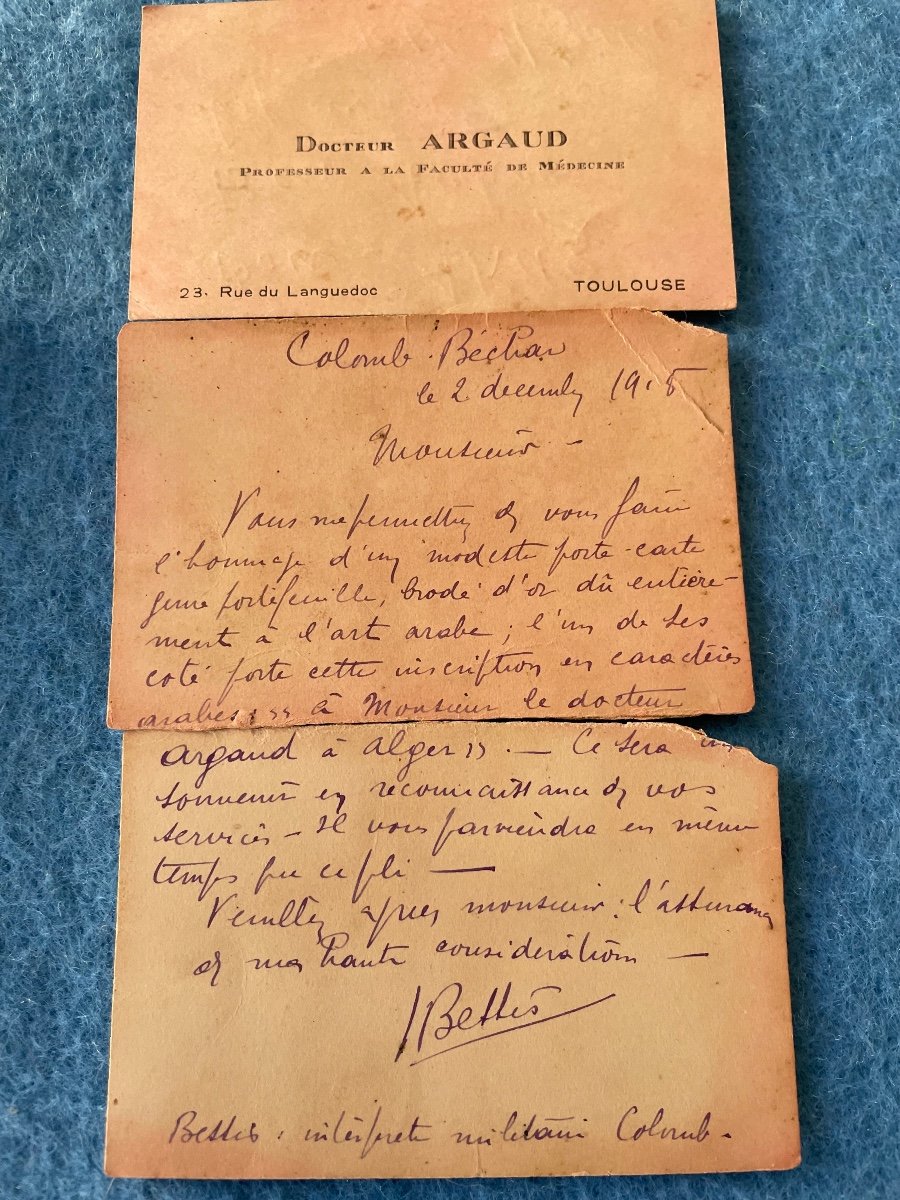 Docteur ARGAUD
Professeur a la Faculté de Médecine
23. Rue du Languedoc
TOULOUSE
Colomb-Béchar
le 2 decembre
Monsieur -
Vous me permettrez de vous faire
l'hommage d'un modeste porte-carte
genre portefeuille, brodé d'or dû entière-
ment à l'art arabe; l'un de ses
coté porte cette inscription en caractères
arabes: "à Monsieur le docteur
Argaud à Alger". — Ce sera un
souvenir en reconnaissance de vos
services - Il vous parviendra en même
temps que ce pli —
Veuillez agréer monsieur: l'assurance
de ma haute considération —
Bettis
: intérprete militaire Colomb-